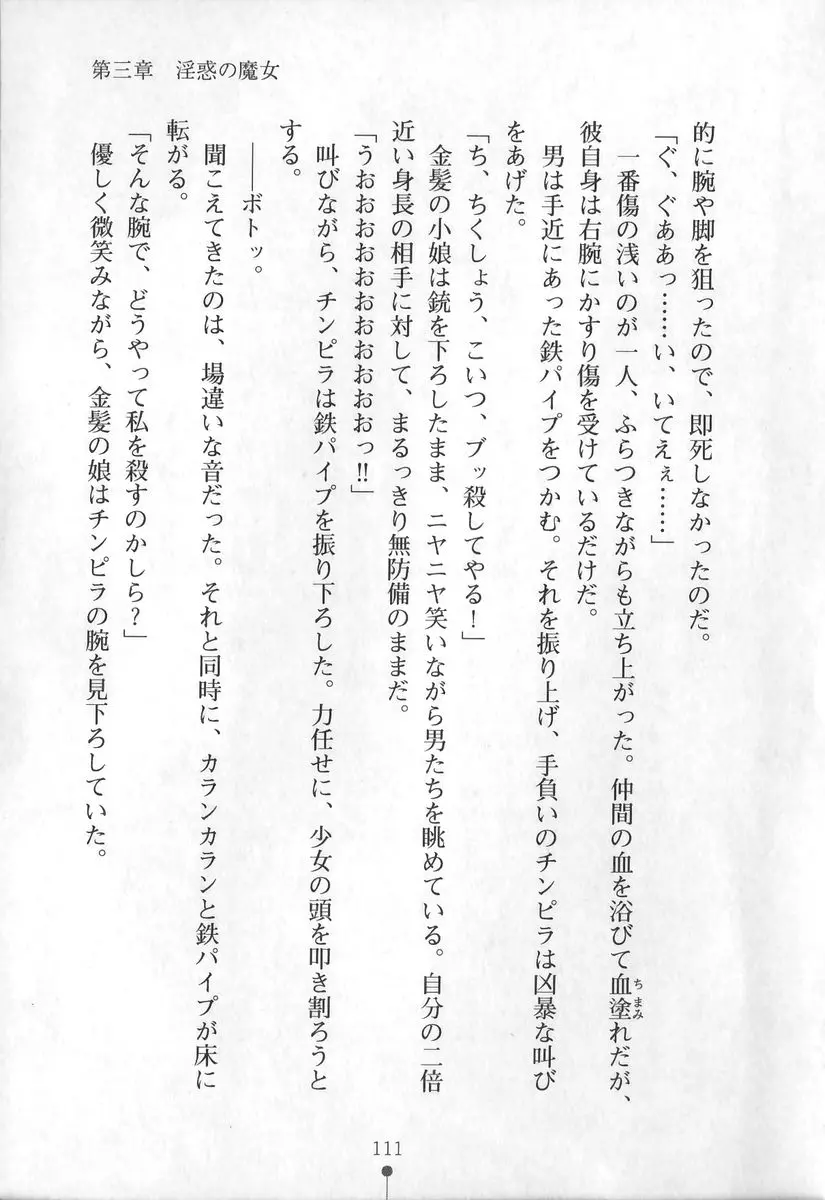 第三章　淫惑の魔女
的に腕や脚を狙ったので、即死しなかったのだ。
「ぐ、ぐああっ……い、いてえぇ……」
　一番傷の浅いのが一人、ふらつきながらも立ち上がった。仲間の血を浴びて血塗れだが、
ちまみ
彼自身は右腕にかすり傷を受けているだけだ。
　男は手近にあった鉄パイプをつかむ。それを振り上げ、手負いのチンピラは凶暴な叫び
をあげた。
「ち、ちくしょう、こいつ、ブッ殺してやる！」
　金髪の小娘は銃を下ろしたまま、ニヤニヤ笑いながら男たちを眺めている。自分の二倍
近い身長の相手に対して、まるっきり無防備のままだ。
「うおおおおおおおおおおおっ!!」
　叫びながら、チンピラは鉄パイプを振り下ろした。力任せに、少女の頭を叩き割ろうと
する。
　――ボトッ。
　聞こえてきたのは、場違いな音だった。それと同時に、カランカランと鉄パイプが床に
転がる。
「そんな腕で、どうやって私を殺すのかしら？」
　優しく微笑みながら、金髪の娘はチンピラの腕を見下ろしていた。
111